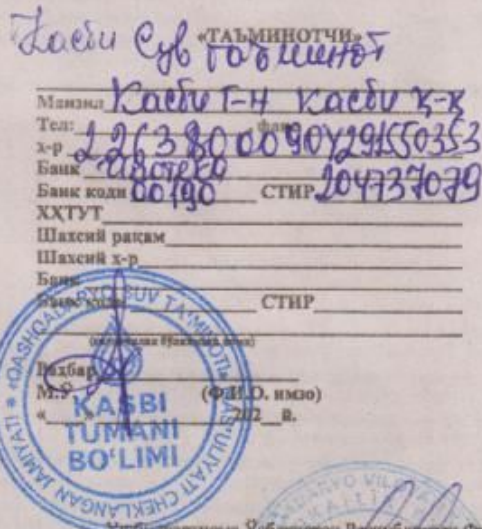 «ТАЪМИНОТЧИ»
Касби Сув таъминот
Манзил Касби т-н Касби қ-қ
Тел: факс
х-р 22638000904291550353
Банк Ипотека
Банк коди 00190 СТИР 204737079
ХҲТУТ
Шахсий рақам
Шахсий х-р
Банк
Банк коди СТИР
Раҳбар
М.Ў (Ф.И.О. имзо)
« » 202 й.
«QASHQADARYO SUV TA'MINOTI» MAS'ULIYATI CHEKLANGAN JAMIYATI
KASBI
TUMANI
BO'LIMI